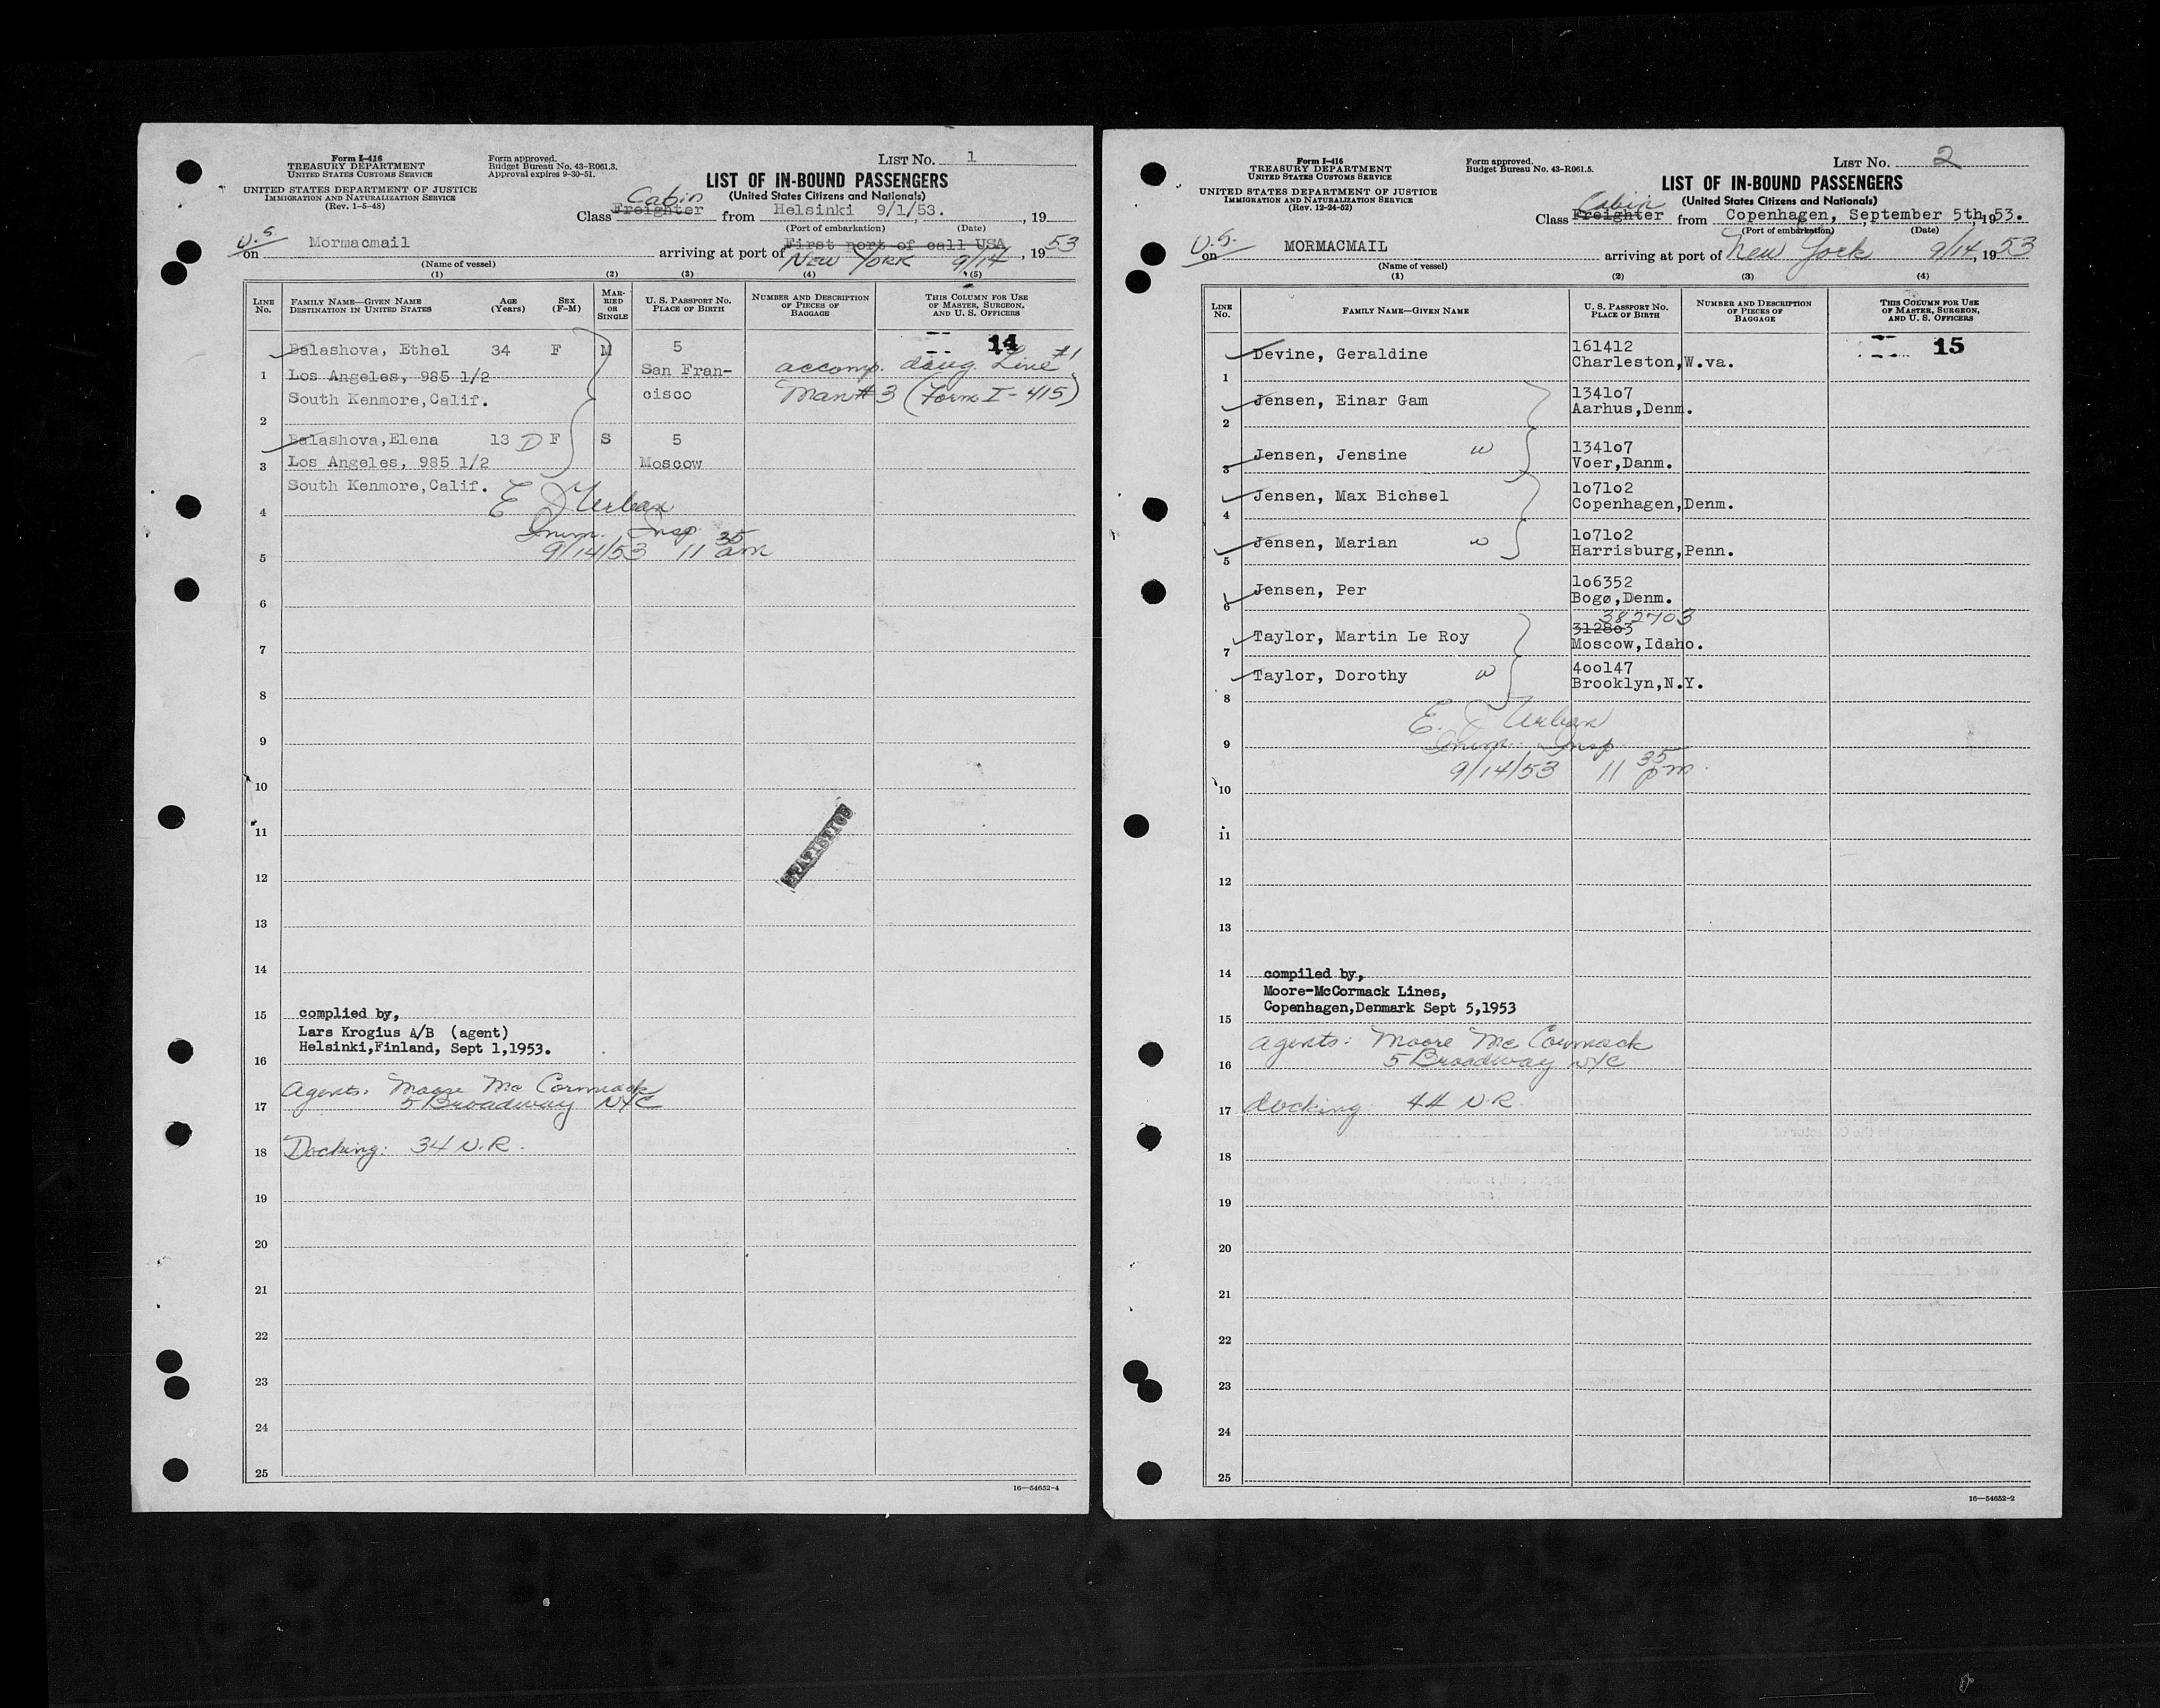 Form I-416
TREASURY DEPARTMENT
UNITED STATES CUSTOMS SERVICE
UNITED STATES DEPARTMENT OF JUSTICE
IMMIGRATION AND NATURALIZATION SERVICE
(Rev. 1-5-48)
Form approved.
Budget Bureau No. 43-R061.3.
Approval expires 9-30-51.
LIST No. 1
LIST OF IN-BOUND PASSENGERS
(United States Citizens and Nationals)
Cabin
Class Freighter from Helsinki 9/1/53. , 19
(Port of embarkation) (Date)
U.S.
on Mormacmail arriving at port of First port of call USA , 19 53
NEW YORK 9/14
(Name of vessel)
(1) (2) (3) (4) (5)
LINE No. FAMILY NAME—GIVEN NAME DESTINATION IN UNITED STATES AGE (Years) SEX (F-M) MARRIED OR SINGLE U. S. PASSPORT No. PLACE OF BIRTH NUMBER AND DESCRIPTION OF PIECES OF BAGGAGE THIS COLUMN FOR USE OF MASTER, SURGEON, AND U. S. OFFICERS
14
Balashova, Ethel 34 F M 5
1 Los Angeles, 985 1/2 San Fran- accomp. daug. Line #1
South Kenmore,Calif. cisco Man # 3 (Form I-415)
2
Balashova,Elena 13 D F S 5
3 Los Angeles, 985 1/2 Moscow
South Kenmore,Calif.
4 E J Urban
Imm. Insp.
5 9/14/53 11 35 am
6
7
8
9
10
11
STATISTICS
12
13
14
15 complied by,
Lars Krogius A/B (agent)
Helsinki,Finland, Sept 1,1953.
16
Agents: Moore Mc Cormack
17 5 Broadway NYC
18 Docking: 34 N.R.
19
20
21
22
23
24
25
16—54652-4
Form I-416
TREASURY DEPARTMENT
UNITED STATES CUSTOMS SERVICE
UNITED STATES DEPARTMENT OF JUSTICE
IMMIGRATION AND NATURALIZATION SERVICE
(Rev. 12-24-52)
Form approved.
Budget Bureau No. 43-R061.5.
LIST No. 2
LIST OF IN-BOUND PASSENGERS
(United States Citizens and Nationals)
Cabin
Class Freighter from Copenhagen, September 5th, 19 53.
(Port of embarkation) (Date)
U.S.
on MORMACMAIL arriving at port of New York 9/14, 19 53
(Name of vessel)
(1) (2) (3) (4)
LINE No. FAMILY NAME—GIVEN NAME U. S. PASSPORT No. PLACE OF BIRTH NUMBER AND DESCRIPTION OF PIECES OF BAGGAGE THIS COLUMN FOR USE OF MASTER, SURGEON, AND U. S. OFFICERS
15
161412
Devine, Geraldine Charleston,W.va.
1
134107
Jensen, Einar Gam Aarhus,Denm.
2
134107
Jensen, Jensine w Voer,Danm.
3
107102
Jensen, Max Bichsel Copenhagen,Denm.
4
107102
Jensen, Marian w Harrisburg,Penn.
5
106352
Jensen, Per Bogø,Denm.
6
382703
312803
Taylor, Martin Le Roy Moscow,Idaho.
7
400147
Taylor, Dorothy w Brooklyn,N.Y.
8
E. J Urban
9 Imm. Insp.
9/14/53 11 35 pm
10
11
12
13
14 compiled by,
Moore-McCormack Lines,
Copenhagen,Denmark Sept 5,1953
15
agents: Moore Mc Cormack
16 5 Broadway NYC
17 docking: 44 N.R.
18
19
20
21
22
23
24
25
16—54652-2